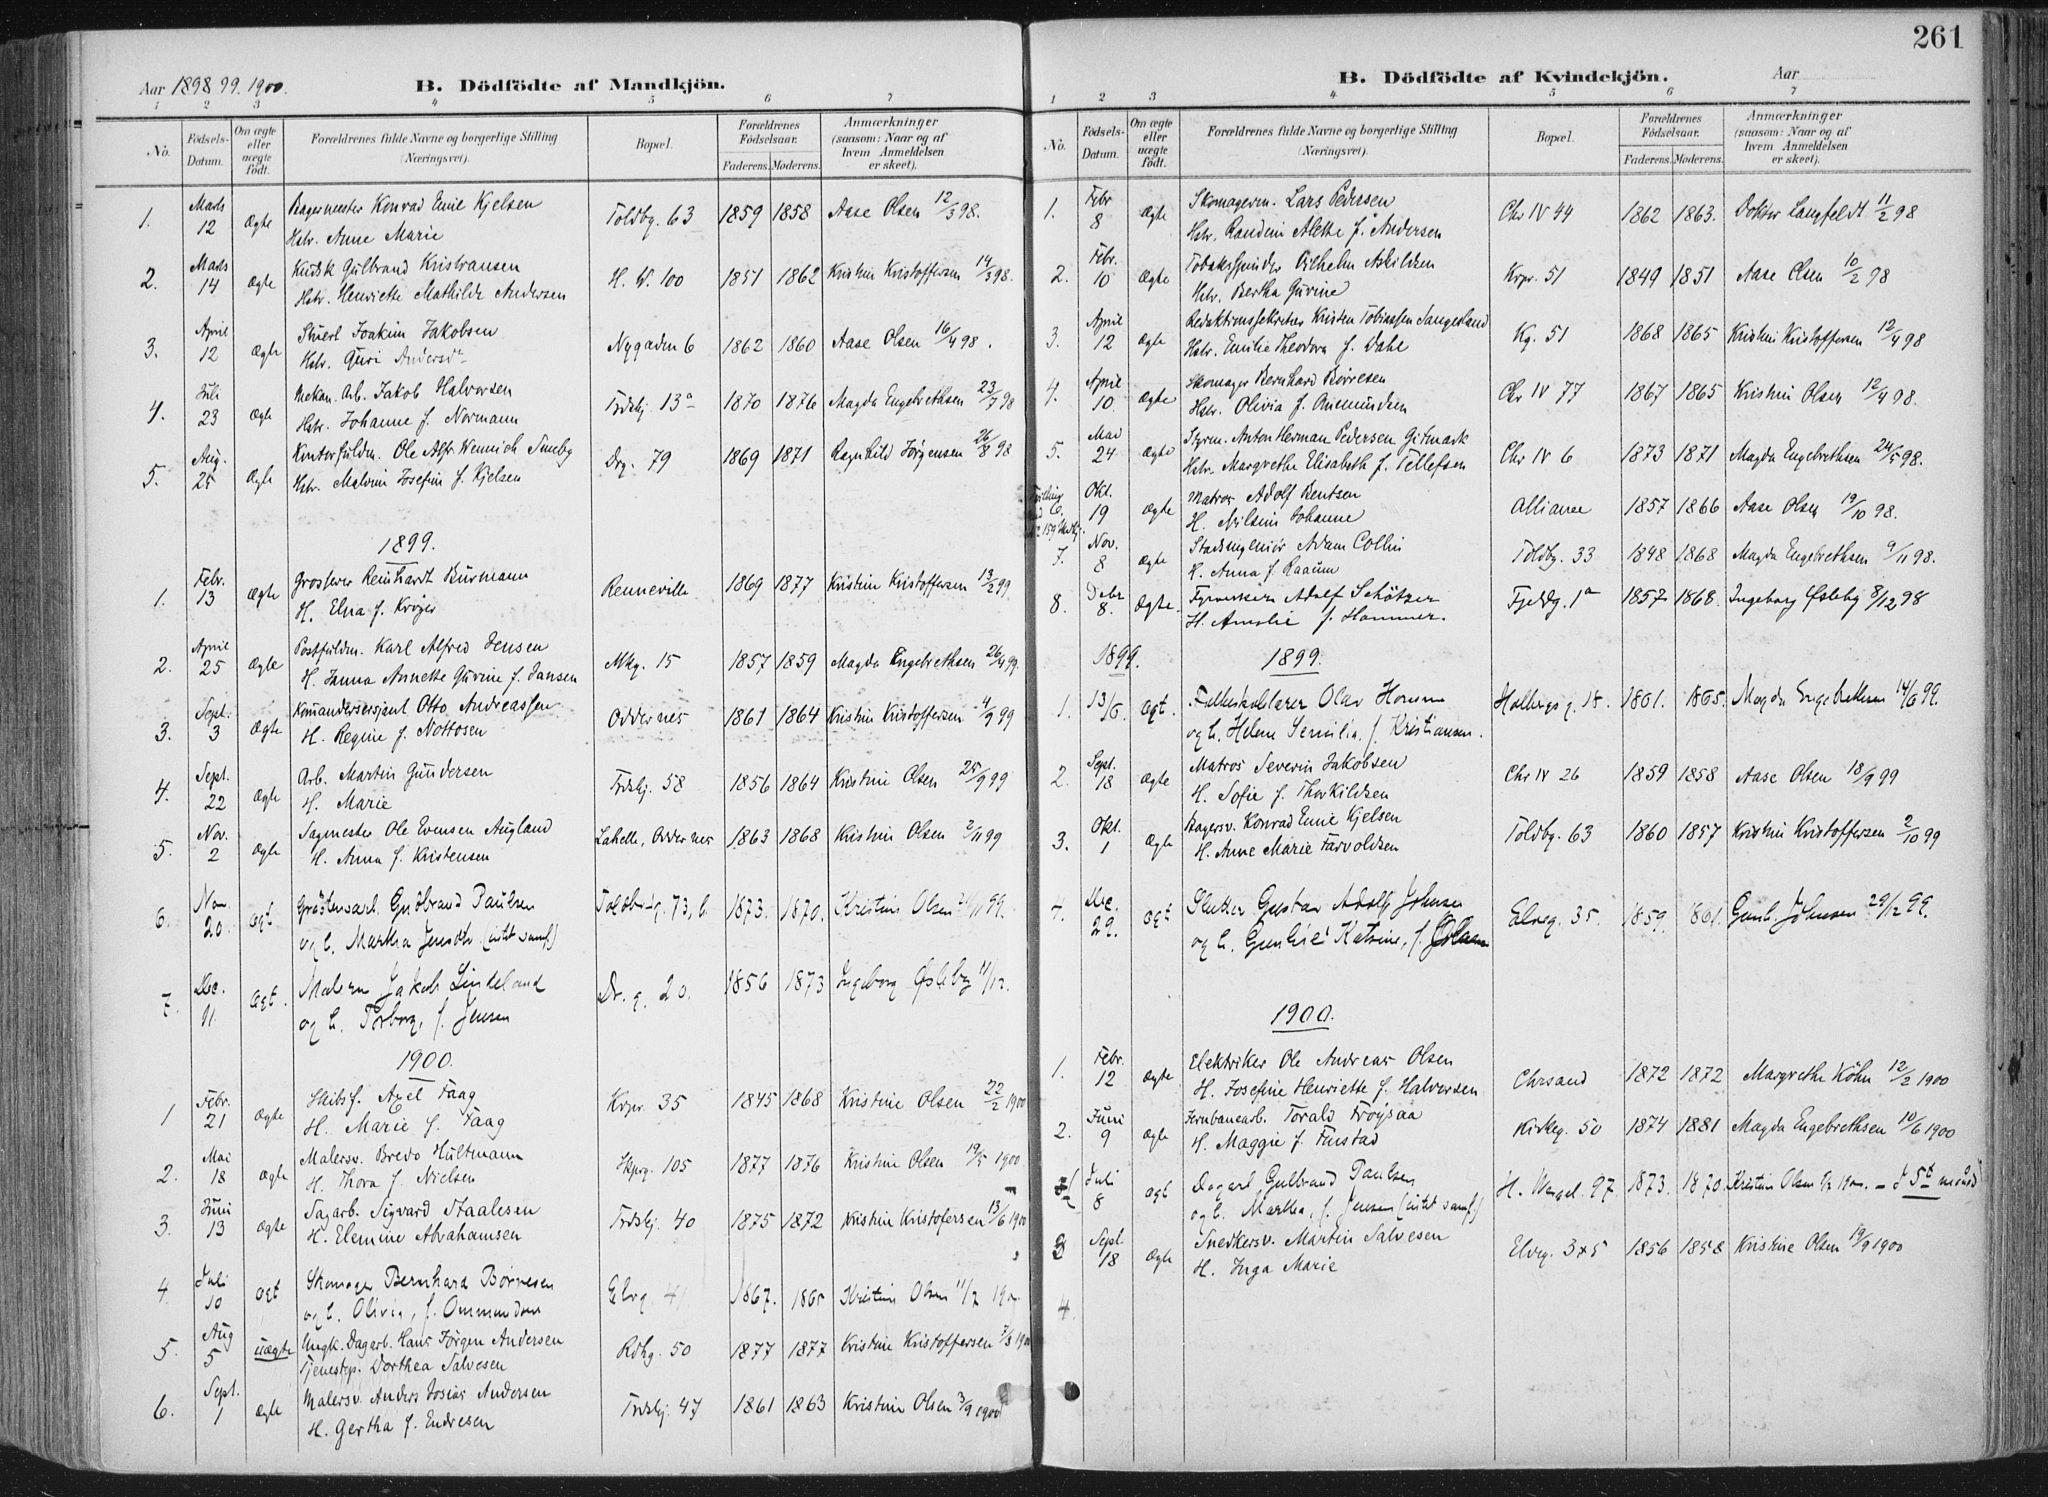 Aar 1898 99. 1900.
B. Dödfödte af Mandkjön.
1 2 3 4 5 6 7
No. Födsels-Datum. Om ægte eller uægte födt. Forældrenes fulde Navne og borgerlige Stilling (Næringsvei). Bopæl. Forældrenes Födselsaar. Faderens. Moderens. Anmærkninger (saasom: Naar og af hvem Anmeldelsen er skeet).
1. Mads 12 Ægte Bagermester Konrad Emil Kjelsen Toldbg. 63 1859 1858 Aase Olsen 12/3 98.
Hstr. Anne Marie
2. Mads 14 Ægte Kudsk Gulbrand Kristiansen H. W. 100 1851 1862 Kristine Kristoffersen 14/3 98.
Hstr. Henriette Mathilde Andersen
3. April 12 Ægte Stuert Joakim Jakobsen Nygaden 6 1862 1860 Aase Olsen 16/4 98.
Hstr. Guri Andersdr
4. Juli 23 Ægte Mekan. Arb. Jakob Halvorsen Trdsbj. 13a 1870 1876 Magda Engebrethsen 23/7 98
Hstr. Johanne f. Normann
5. Aug. 25 Ægte Kontorfuldm. Ole Alfr. Wennich Smeby Drg. 79 1869 1871 Ragnhild Jörgensen 26/8 98
Hstr. Malvine Josefine f. Kjelsen
1899.
1. Febr. 13 Ægte Grosserer Reinhardt Burmann Renneville 1869 1877 Kristine Kristoffersen 13/2 99.
H. Elna f. Kröger
2. April 25 Ægte Postfuldm. Karl Alfred Jensen Mkg. 15 1857 1859 Magda Engebrethsen 26/4 99.
H. Janna Annette Gurine f. Jansen
3. Sept. 3 Ægte Komandersersjant Otto Andreassen Oddernes 1861 1864 Kristine Kristoffersen 4/9 99
H. Regine f. Nottosen
4. Sept. 22 Ægte Arb. Martin Gundersen Trdsbj. 58 1856 1864 Kristine Olsen 25/9 99
H. Marie
5. Nov. 2 Ægte Sagmester Ole Evensen Augland Lahelle, Oddernes 1863 1868 Kristine Olsen 2/11 99
H. Anna f. Kristensen
6. Nov. 20. Ægt Grøftensarb. Gudbrand Paulsen Toldbodg. 73, b. 1873. 1870. Kristine Olsen 21/11 99.
og h. Martha Jensdtr. (intet samf.)
7. Dec. 11. Ægt. Malerm Jakob Lindeland Dr. g. 20. 1856 1873 Ingeborg Øsleby 11/12.
og h. Torborg, f. Jensen
1900.
1 Febr. 21 Ægte Skibsf. Axel Faag Krpr. 35 1845 1868 Kristine Olsen 22/2 1900
H. Marie f. Faag
2. Mai 18 Ægte Malersv. Bredo Hultmann Skprg. 105 1877 1876 Kristine Olsen 19/5 1900
H. Thora f. Nielsen
3. Juni 13 Ægte Sagarb. Sigvard Staalesen Trdsbj. 40 1875 1872 Kristine Kristofersen 13/6 1900
H. Elemine Abrahamsen
4. Juli 10 Ægt Skomager Bernhard Börresen Elvg. 41 1867. 1865 Kristine Olsen 11/7 1900
og h. Olivia, f. Ommundsen
5. Aug 5 uægte Ungk. Dagarb. Hans Jörgen Andersen Rdhg. 50 1877 1877 Kristine Kristoffersen 7/8 1900
Tjenestep. Dorthea Salvesen
6. Sept. 1 Ægte Malersv. Anders Josias Andersen Trdsbj. 47 1861 1863 Kristine Olsen 3/9 1900
H. Gertha f. Endresen
261
B. Dödfödte af Kvindekjön.
Aar
1 2 3 4 5 6 7
No. Födsels-Datum. Om ægte eller uægte födt. Forældrenes fulde Navne og borgerlige Stilling (Næringsvei). Bopæl. Forældrenes Födselsaar. Faderens. Moderens. Anmærkninger (saasom: Naar og af hvem Anmeldelsen er skeet).
1. Febr 8 Ægte Skomagerm. Lars Pedersen Chr IV 44 1862 1863. Doktor Langfeldt 11/2 98
Hstr. Randine Alette f. Andersen
2. Febr. 10 Ægte Tobakspinder Vilhelm Askildsen Krpr. 51 1849 1851 Aase Olsen 10/2 98
Hstr. Bertha Gurine
3. April 12 Ægte Redaktionssekretær Kristen Tobiassen Sangesland Kg. 51 1868 1865 Kristine Kristoffersen 12/4 98
Hstr. Emilie Theodora f. Dahl
4. April 10. Ægte Skomager Bernhard Børresen Chr IV 77 1867 1865 Kristine Olsen 12/4 98.
Hstr. Olivia f. Aanemundsen
5. Mai 24 Ægte Styrm. Anton Herman Pedersen Gitmark Chr IV 6 1873 1871 Magda Engebrethsen 24/5 98.
Hstr. Margrethe Elisabeth f. Tellefsen
6. Okt. 19 Ægte Matros Adolf Bentsen Alliance 1857 1866 Aase Olsen 19/10 98.
H. Nilsine Johanne
7. Nov. 8 Ægte Stadsingeniör Adam Collin Toldbg. 33 1848 1868 Magda Engebrethsen 9/11 98.
H. Anna f. Raaum
8. Debr 8. Ægte Adolf Schötzer Fjeldg. 1a 1857 1868. Ingeborg Øsleby 8/12 98
H. Amalie f. Hammer.
1899. 1899.
1. 13/6. Ægt. Folkeskolelærer Olav Homme Holbergs g. 18. 1861. 1865. Magda Engebrethsen 14/6 99.
og h. Helene Severine, f. Kristiansen.
2. Sept. 18 Ægte Matros Severin Jakobsen Chr IV 26 1859 1858 Aase Olsen 18/9 99
H. Sofie f. Thorkildsen
3. Okt. 1 Ægte Bagersv. Konrad Emil Kjelsen Toldbg. 63 1860 1857 Kristine Kristoffersen 2/10 99
H. Anne Marie Farvoldsen
7. Dec. 29. Ægt Slakter Gustav Adolf Johnsen Elveg. 35 1859. 1861. Gunh. Johnsen 29/12 99.
og h. Gunhild Katrine, f. Olsen
1900.
1. Febr. 12 Ægte Elektriker Ole Andreas Olsen Chrsand 1872 1872 Margrethe Köhn 12/2 1900
H. Josefine Henriette f. Halvorsen
2. Juni 9 Ægte Jernbanearb. Torald Fröysaa Kirkeg. 50 1874 1881 Magda Engebrethsen 10/6 1900
H. Maggie f. Finstad
3 Juli 8 Ægt Dagarb Gulbrand Paulsen H. Wergel. 97. 1873. 1870. Kristine Olsen 9/7 1900. – I 5te maaned
og h. Martha, f. Jensen (intet samf.)
3 Sept. 18 Ægte Snedkersv. Martin Salvesen Elvg. 3x5 1856 1858 Kristine Olsen 19/9 1900
H. Inga Marie
4.